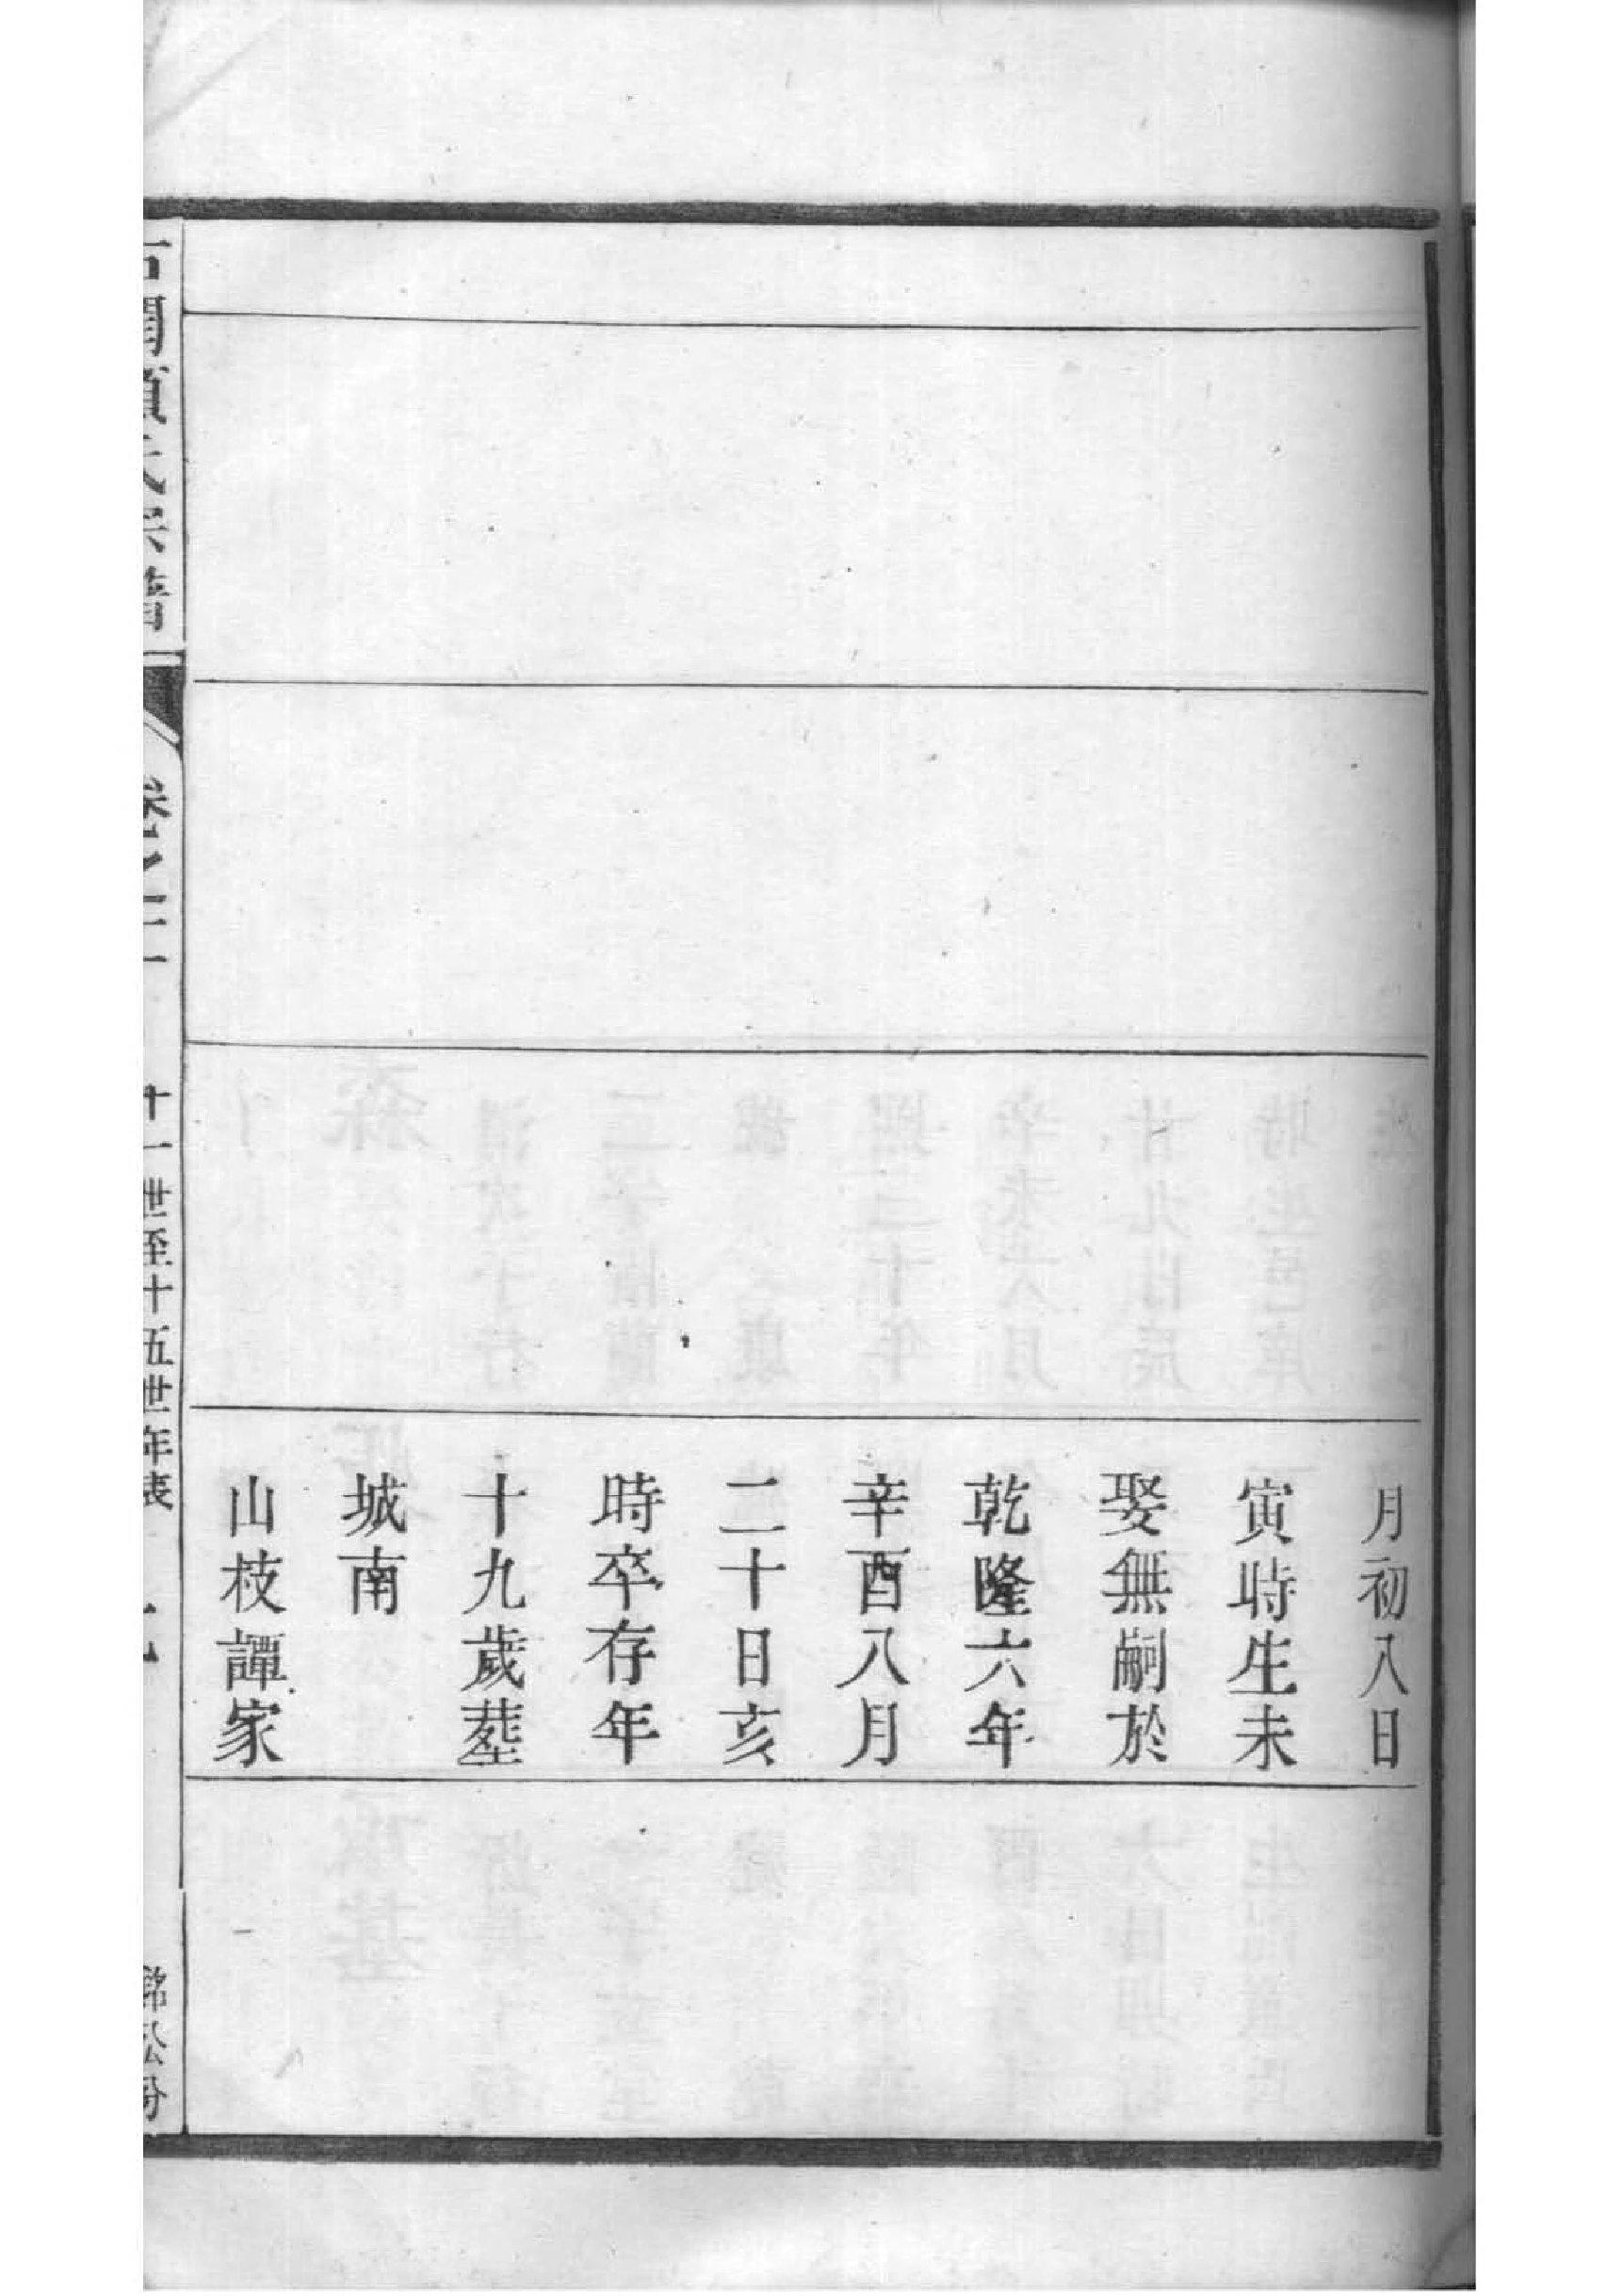 月初八日
寅時生未
娶無嗣於
乾隆六年
辛酉八月
二十日亥
時卒存年
十九歲塟
城南
山枝譚家
卷之二
十一世至十五世年表
銘公分